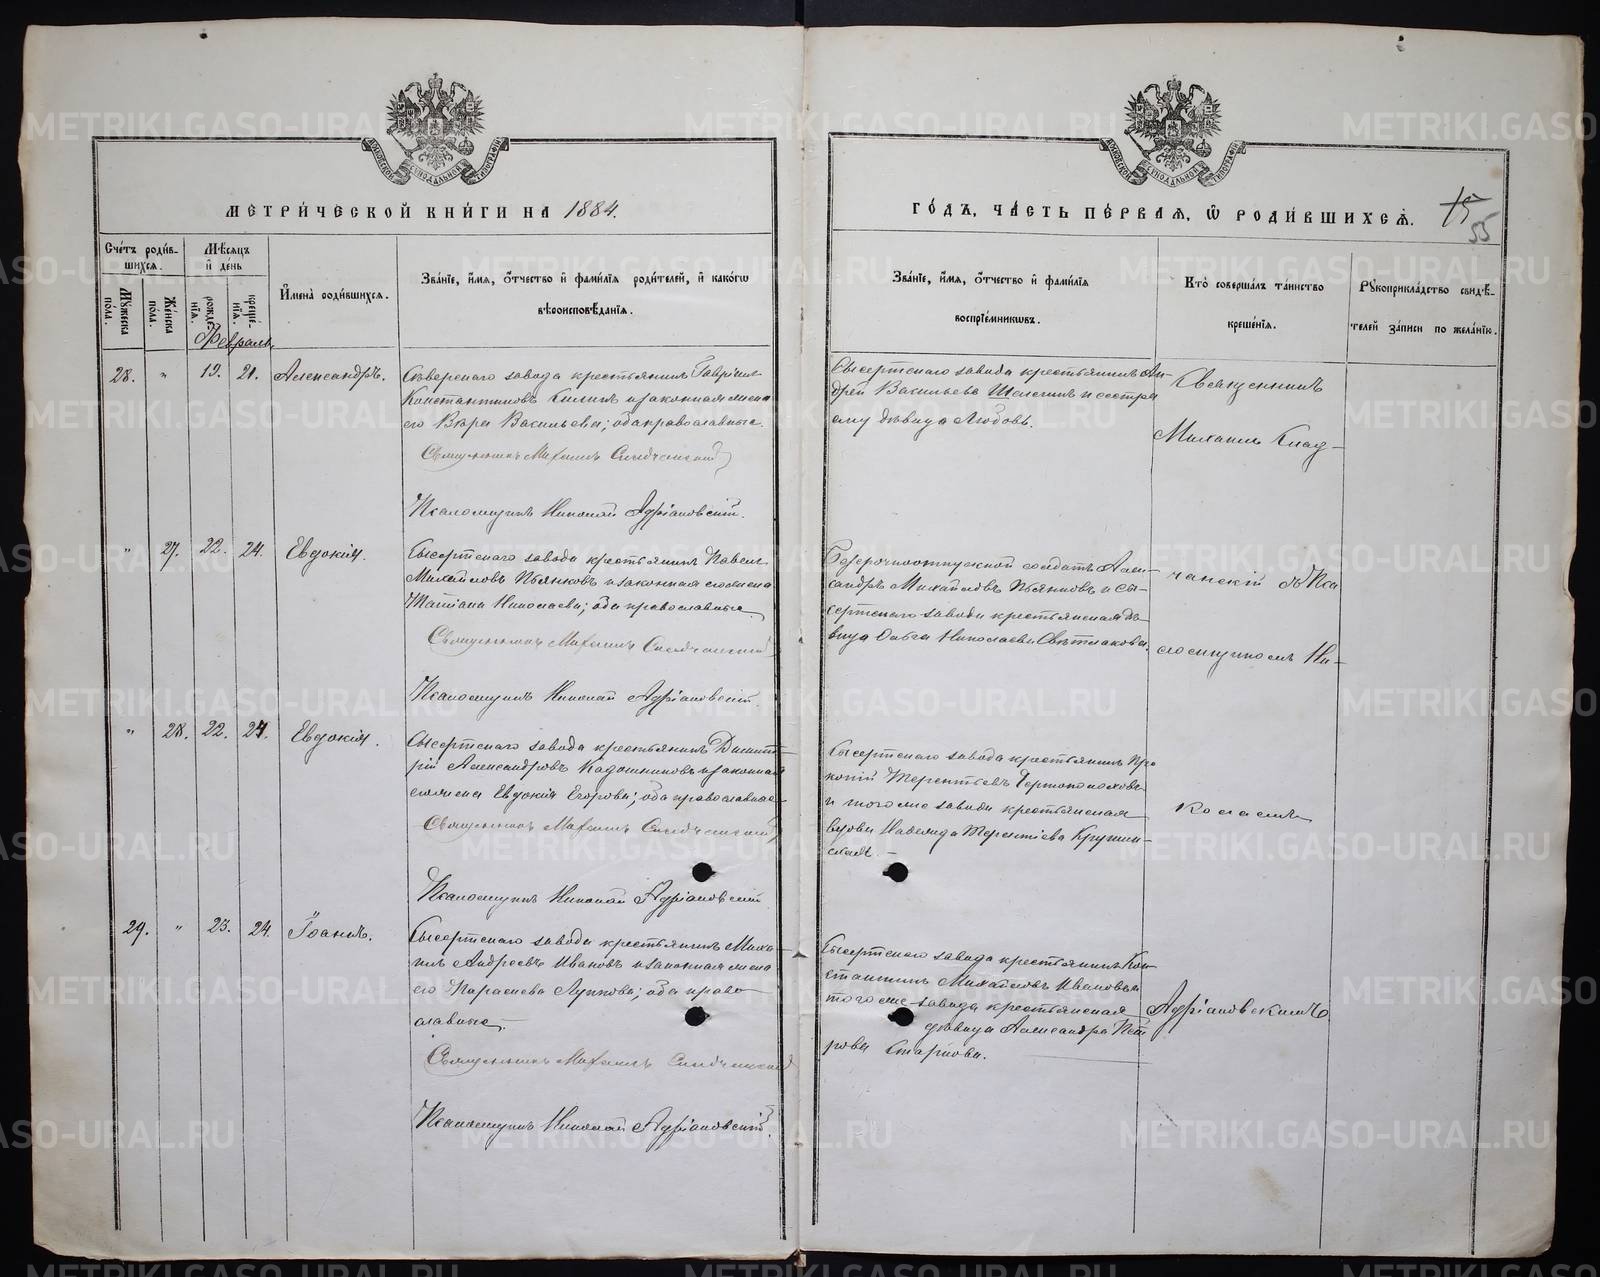 МЕТРИЧЕСКОЙ КНИГИ НА 1884.
Счетъ родив-
шихся.
Мѣсяцъ
и день
Мужеска
пола.
Женска
пола.
рожде-
нія.
креще-
нія.
Имена родившихся.
Званіе, имя, отчество и фамилія родителей, и какого
вѣроисповѣданія.
Февраль.
28. " 19. 21. Александръ.
Сѣверскаго завода крестьянинъ Гавріилъ
Константиновъ и законная жена
его Вѣра Васильева; оба православные.
Священникъ Михаилъ
Псаломщикъ Николай Адріановскій.
" 27. 22. 24. Евдокія.
Сысертскаго завода крестьянинъ Павелъ
Михайловъ Пьянковъ и законная его жена
Татіана Николаева; оба православные
Священникъ Михаилъ
Псаломщикъ Николай Адріановскій.
" 28. 22. 24. Евдокія.
Сысертскаго завода крестьянинъ Димит-
рій Александровъ Кадошниковъ и законная
его жена Евдокія Егорова; оба православные
Священникъ Михаилъ
Псаломщикъ Николай Адріановскій
29. " 23. 24. Іоаннъ.
Сысертскаго завода крестьянинъ Миха-
илъ Андреевъ Ивановъ и законная жена
его Параскева Лупповa; оба право-
славные.
Священникъ Михаилъ
Псаломщикъ Николай Адріановскій.
ГОДЪ, ЧАСТЬ ПЕРВАЯ, Ѡ РОДИВШИХСЯ.
15
55
Званіе, имя, отчество и фамилія
воспріемниковъ.
Кто совершалъ таинство
крещенія.
Рукоприкладство свидѣ-
телей записи по желанію.
Сысертскаго завода крестьянинъ Ан-
дрей Васильевъ и сестра
ему дѣвица Любовь.
Священникъ
Михаилъ
Безсрочноотпускной солдатъ Алек-
сандръ Михайловъ Пьянковъ и Сы-
сертскаго завода крестьянская дѣ-
вица Ольга Николаева Свѣтлакова.
чанскій съ Пса
ломщикомъ Ни-
Сысертскаго завода крестьянинъ Про
копій Терентьевъ Чертополоховъ
и того же завода крестьянская
вдова Надежда Терентіева
колаемъ
Сысертскаго завода крестьянинъ Кон-
стантинъ Михайловъ Ивановъ и
того же завода крестьянская
дѣвица Александра Пет
рова Старкова.
Адріановскимъ